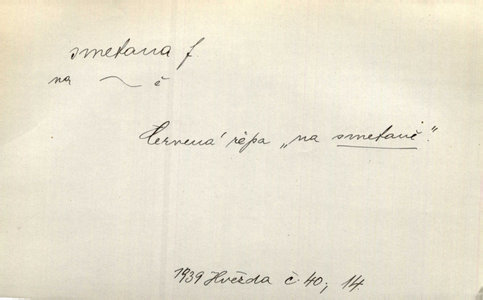 smetana f.
na ~ ě
Červená řépa „na smetaně".
1939 Hvězda č. 40, 14.